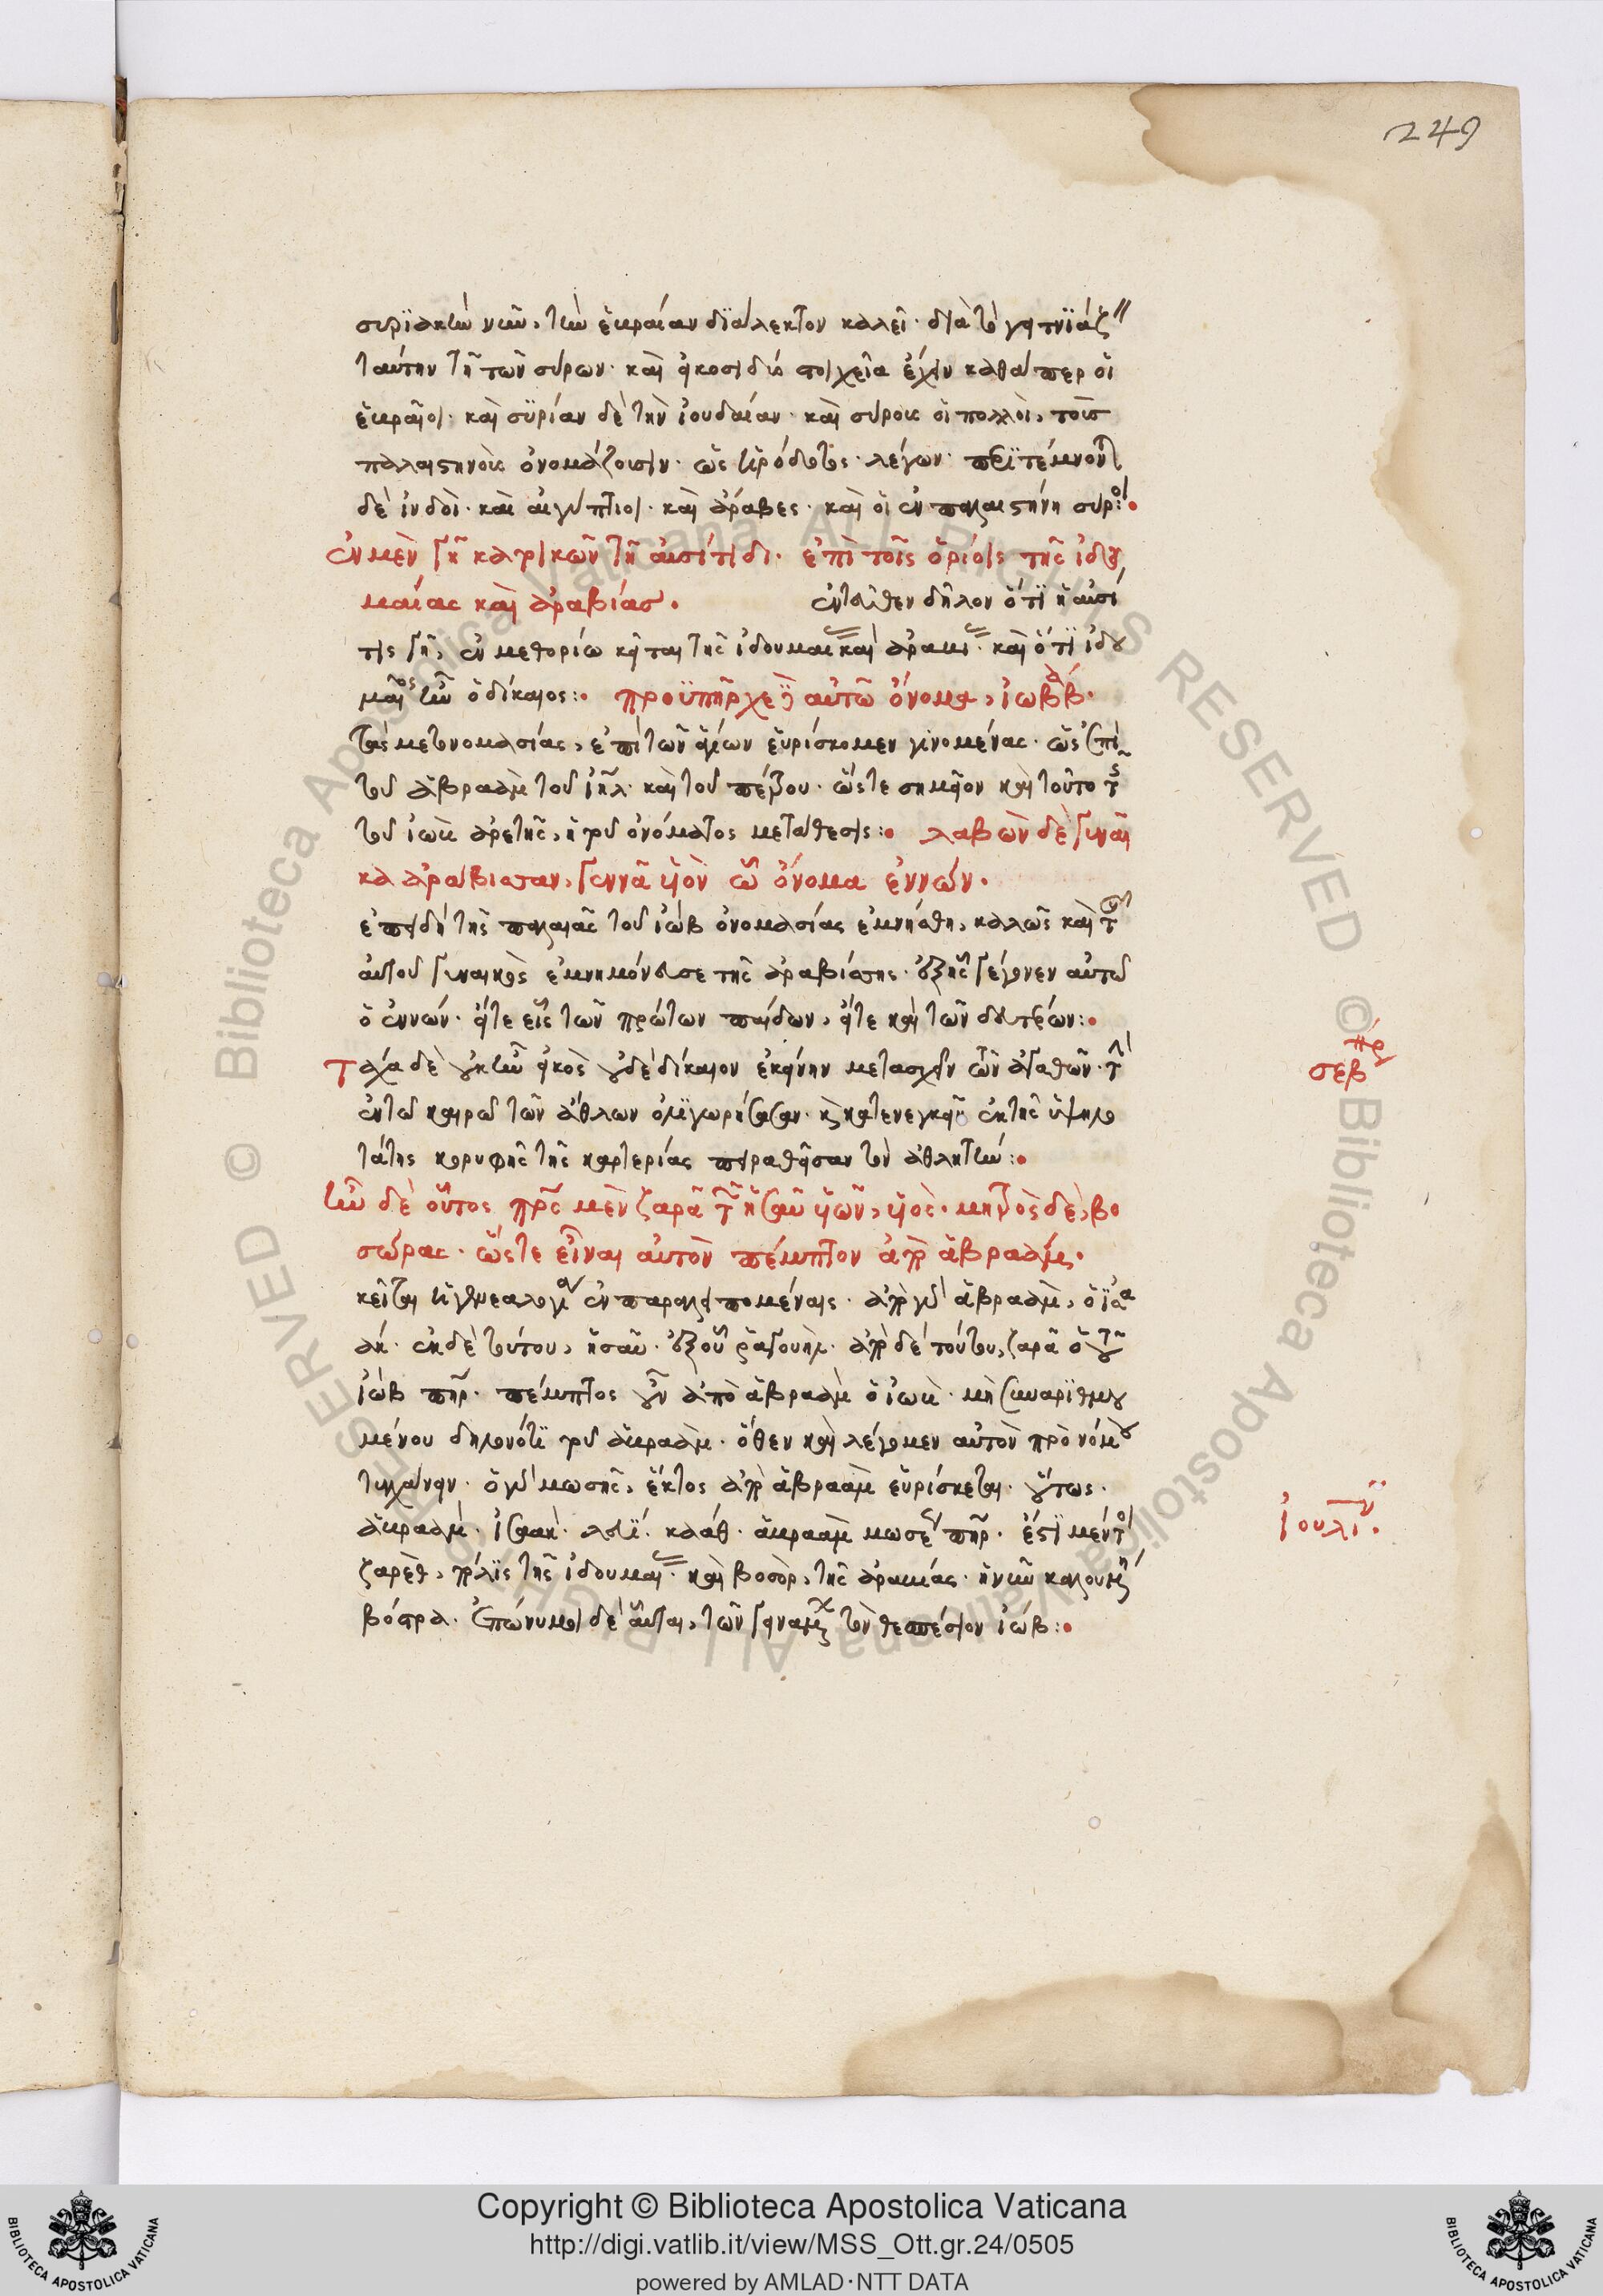 249
συριακὴν νῦν, τὴν ἑβραίαν διάλεκτον καλεῖ· διὰ τὸ γειτνιάζ
ταύτην τῇ τῶν σύρων· καὶ εἰκοσιδύο στοιχεῖα ἔχειν καθάπερ οἱ
ἑβραῖοι· καὶ συρίαν δὲ τὴν ἰουδαίαν· καὶ σύρους οἱ πολλοὶ, τοὺς
παλαιστηνοὺς ὀνομάζουσιν· ὡς ἡρόδοτος λέγων· περιτέμνοντ
δὲ ἰνδοὶ· καὶ αἰγύπτιοι· καὶ ἄραβες· καὶ οἱ ἐν παλαιστήνη συρ:
ἐν μὲν γῆ κατοικῶν τῆ αὐσίτιδι· ἐπὶ τοῖς ὁρίοις τῆς ἰδου
μαίας καὶ ἀραβίας. ἐντεῦθεν δῆλον ὅτι ἡ αὐσί
τις γῆ, ἐν μεθορίω κεῖται τῆς ἰδουμαι καὶ ἀραβι· καὶ ὅτι ἰδου
μαῖος ἦν ὁ δίκαιος: προϋπῆρχε δὲ αὐτῶ ὄνομα, ἰωβάβ.
τὰς μετονομασίας, ἐπὶ τῶν ἁγίων εὑρίσκομεν γινομένας· ὡς ἐπὶ
τοῦ ἀβραὰμ τοῦ ἰηλ· καὶ τοῦ πέτρου· ὥστε σημεῖον καὶ τοῦτο τῆς
τοῦ ἰὼβ ἀρετῆς, ἡ τοῦ ὀνόματος μετάθεσις: λαβὼν δὲ γυναῖ
κα ἀράβισσαν, γεννᾶ υἱὸν ὧ ὄνομα ἐννών.
ἐπειδὴ τῆς παλαιᾶς τοῦ ἰὼβ ὀνομασίας ἐμνήσθη, καλῶς καὶ τῆς
αὐτοῦ γυναικὸς ἐμνημόνευσε τῆς ἀραβίσσης· ἐξ ἧς γέγονεν αὐτῶ
ὁ ἐννών· εἴτε εἷς τῶν πρώτων παίδων, εἴτε καὶ τῶν δευτέρων:
Τάχα δὲ οὐκ ἦν εἰκὸς οὐδὲ δίκαιον ἐκείνην μετασχεῖν τῶν ἀγαθῶν· τὴν
ἐν τῶ καιρῶ τῶν ἄθλων ὀλιγωρήσασαν· καὶ κατενεγκεῖν ἐκ τῆς ὑψηλο
τάτης κορυφῆς τῆς καρτερίας πειραθεῖσαν τὸν ἀθλητήν:
σεβ
ἦν δὲ οὗτος πρς μὲν ζαρὰ τῶν ἡσαῦ υἱῶν, υἱός· μητρὸς δὲ, βο
σώρας· ὥστε εἶναι αὐτὸν πέμπτον ἀπὸ ἀβραάμ.
κεῖται ἡ γενεαλογία ἐν παραλειπομέναις· ἀπὸ γὰρ ἀβραὰμ, ὁ ἰσα
ὰκ· ἐκ δὲ τούτου, ἡσαῦ· ἐξ οὗ ῥαγουήλ· ἀπὸ δὲ τούτου, ζαρὰ ὁ τοῦ
ἰὼβ πηρ· πέμπτος οὖν ἀπὸ ἀβραὰμ ὁ ἰώβ· μὴ συναριθμου
μένου δηλονότι τοῦ ἀβραάμ· ὅθεν καὶ λέγομεν αὐτὸν πρὸ νόμου
τυγχάνειν· ὁ γὰρ μωσῆς, ἕκτος ἀπὸ ἀβραὰμ εὑρίσκεται· οὕτως·
ἀβραάμ· ἰσαάκ· λευί· καάθ· ἀβραὰμ μωσέως πηρ· ἔστι μέντοι
ἰουλι.
ζαρὲθ, πόλις τῆς ἰδουμαι· καὶ βοσὸρ, τῆς ἀραβίας· ἡ νῦν καλουμένη
βόστρα· ἐπώνυμοι δὲ αὗται, τῶν γειναμ τὸν θεσπέσιον ἰώβ:
© Biblioteca Apostolica Vaticana ALL RIGHTS RESERVED
Copyright © Biblioteca Apostolica Vaticana
http://digi.vatlib.it/view/MSS_Ott.gr.24/0505
powered by AMLAD·NTT DATA
BIBLIOTECA APOSTOLICA VATICANA
BIBLIOTECA APOSTOLICA VATICANA